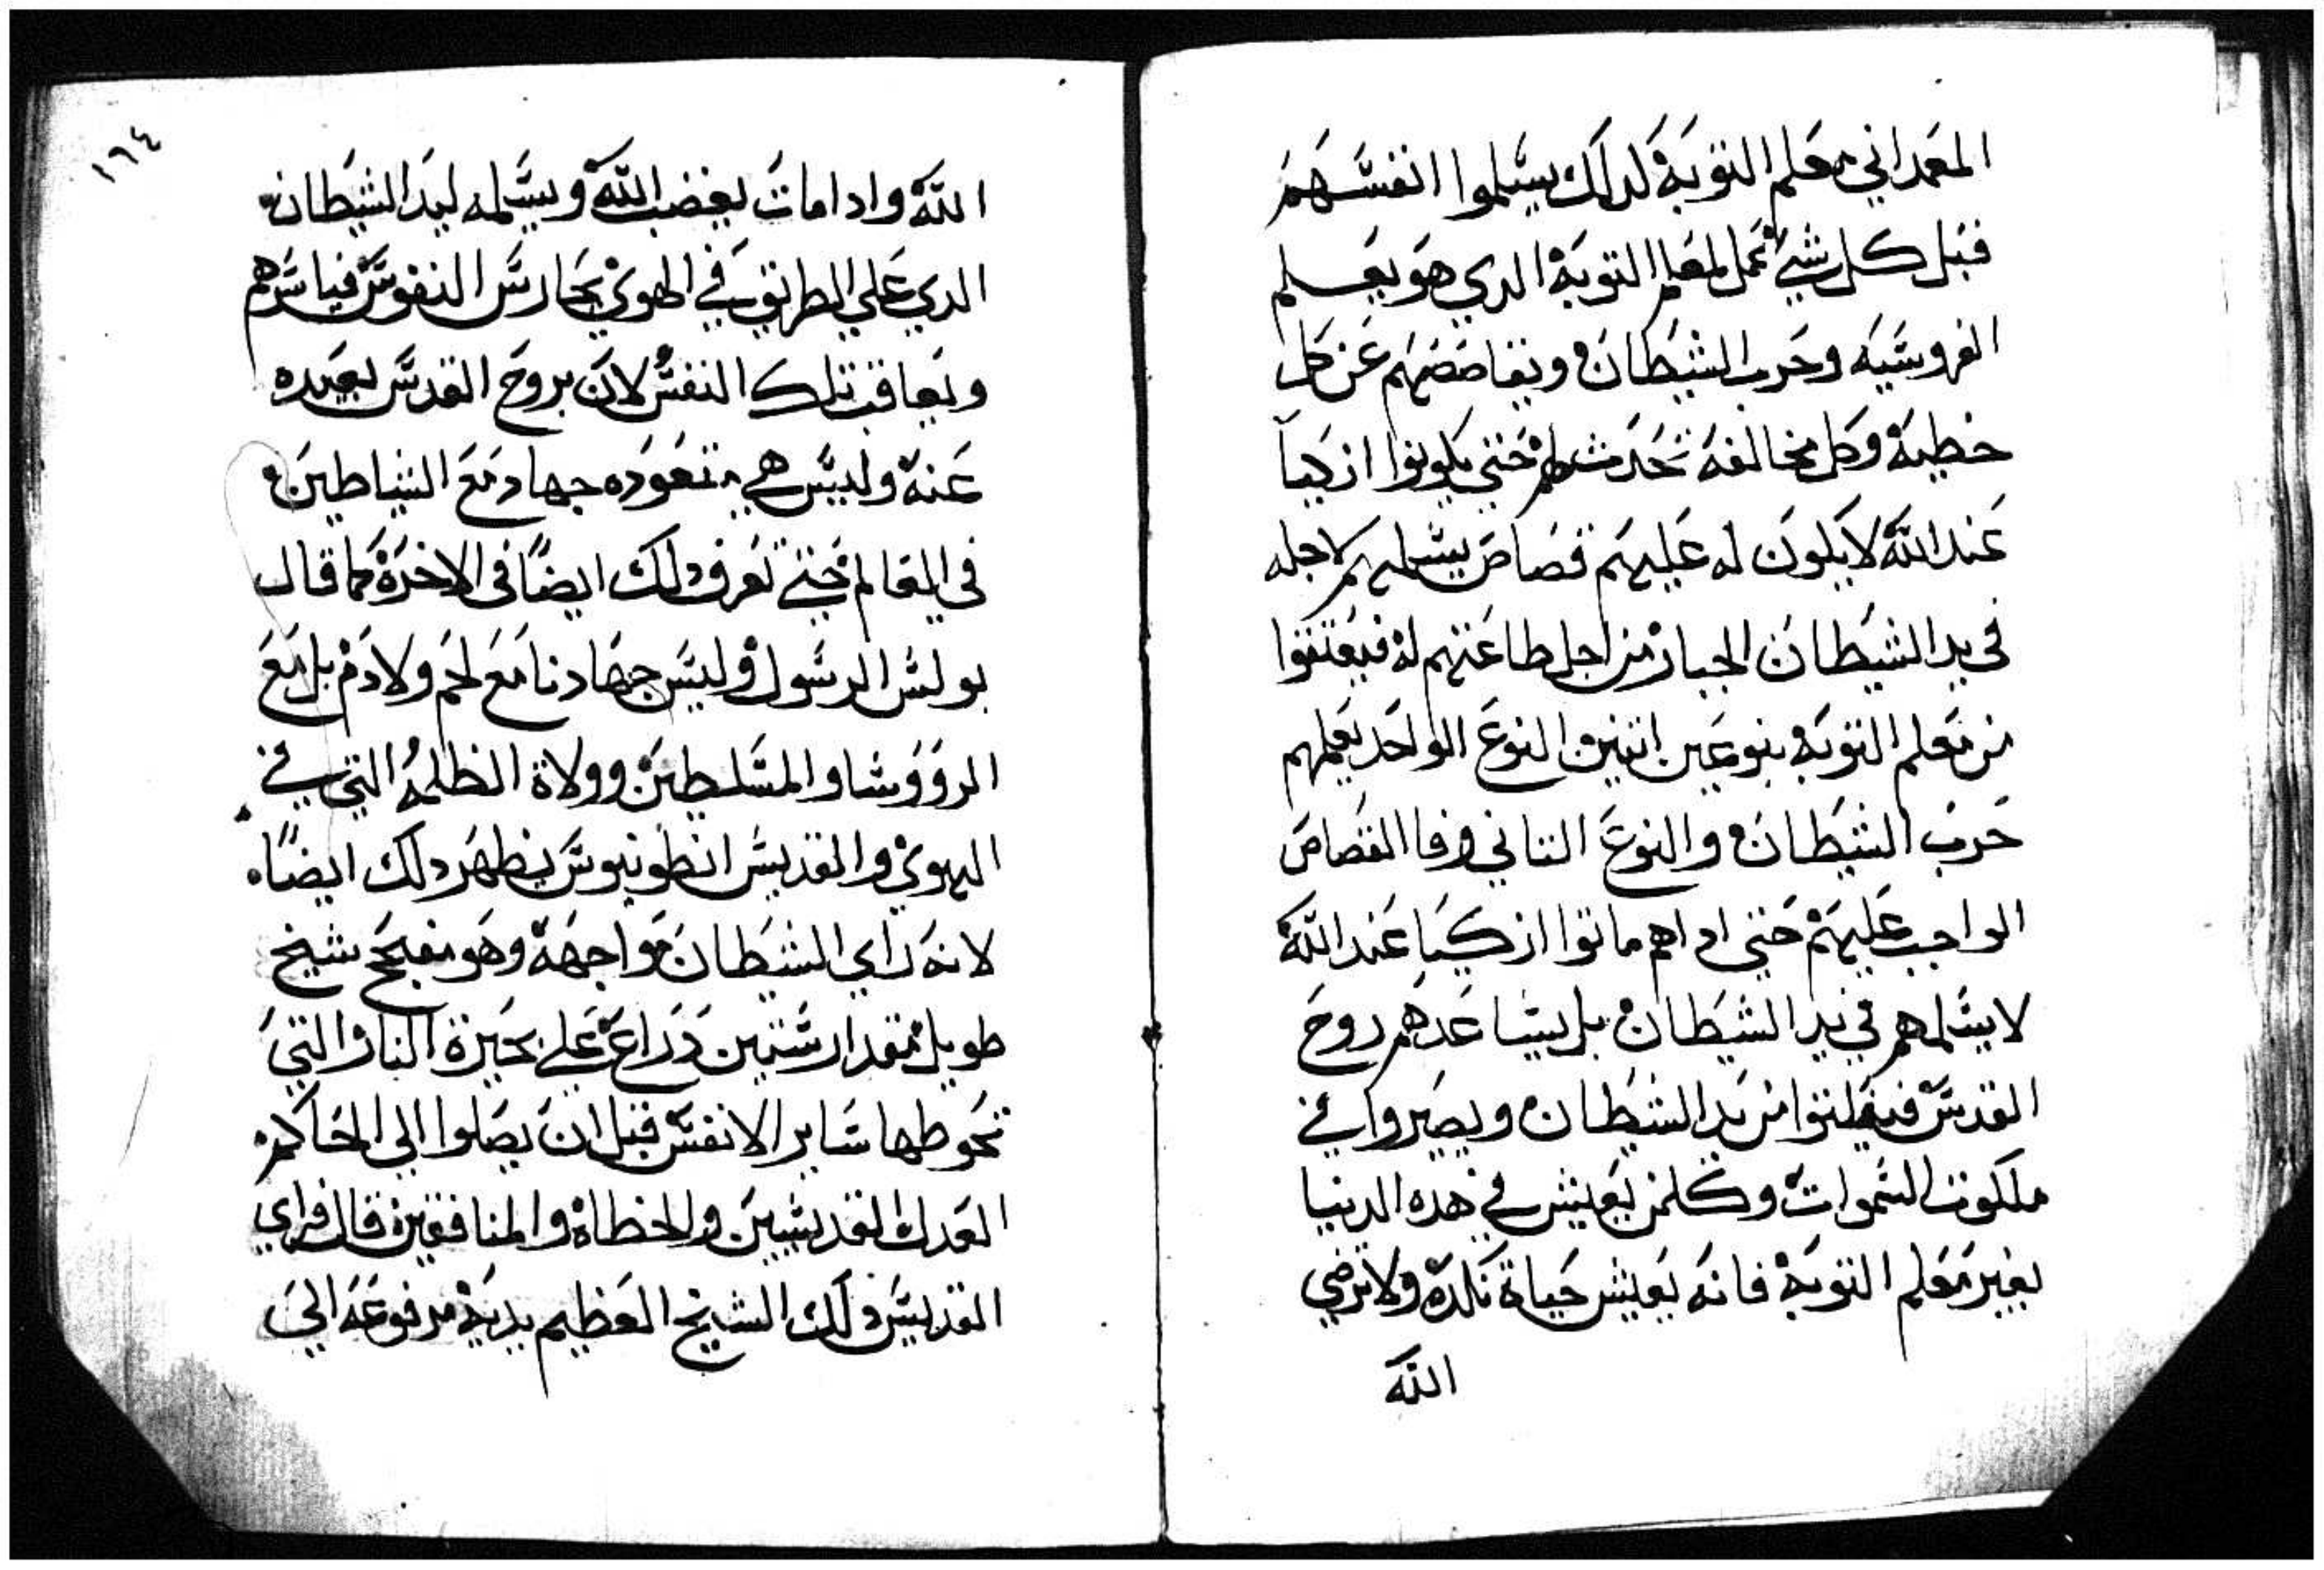 المعمداني معلم التوبة لدلك يسلموا انفسهم
قبل كل شي لمعلم التوبة الدي هو يعلم
الفروسية وحرب الشيطان ويقاصصهم عن كل
خطية وكل مخالفة تحدث لهم حتي يكونوا ازكيا
عند الله لا يكون له عليهم قصاص يسلمهم لاجله
في يد الشيطان الجبار من اجل طاعتهم له فيعتقوا
من معلم التوبة بنوعين اتنين النوع الواحد يعلمهم
حرب الشيطان والنوع التاني وفا القصاص
الواجب عليهم حتي اداهم ماتوا ازكيا عند الله
لا يسلمهم في يد الشيطان بل يساعدهم روح
القدس فيفلتوا من يد الشيطان ويصيروا في
ملكوت السموات وكلمن يعيش في هده الدنيا
بغير معلم التوبة فانه يعيش حياة نكدة ولا يرضي
الله
١٦٤
الله وادا مات يغضب الله ويسلمه ليد الشيطان
الدي علي الطريق في الهوي يحارس النفوس فياسرهم
ويعاقب تلك النفس لان بروح القدس بعيده
عنة وليس هي متعوده جهاد مع الشياطين
في العالم حتي تعرف دلك ايضا في الاخرة كما قال
بولس الرسول وليس جهادنا مع لحم ولا دم بل مع
الرووسا والمسلطين وولاة الظلمة التي في
الهوي والقديس انطونيوس يظهر دلك ايضا
لانه راي الشيطان مواجهة وهو مفيح شيخ
طويل بمقدار ستين دراع علي بحيرة النار التي
تحوطها ساير الانفس قبل ان يصلوا الي الحاكم
العدل القديسين والخطاة والمنافقين قال فراي
القديس دلك الشيخ العظيم يدية مرفوعة الي